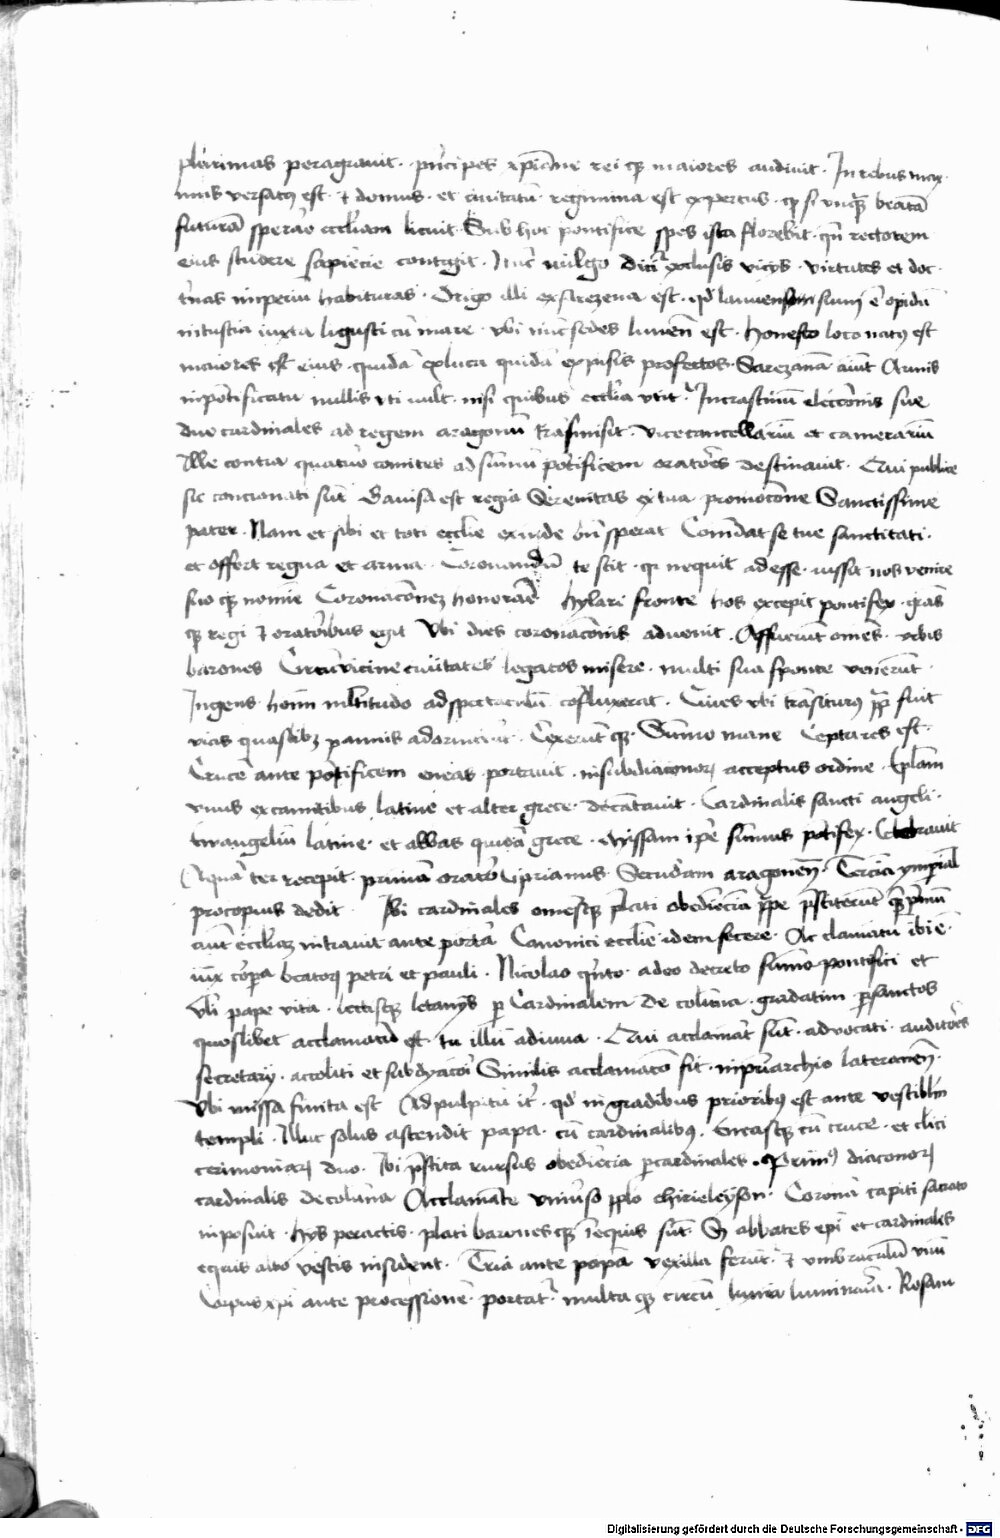 plurimas peragravit · principes xpiane rei qz maiores audivit · In rebus max
imis versatus est · et domus · et civitatum regimina est expertus · qz si unquam beatam
futuram sperare eccliam licuit · Sub hoc pontifice spes ista florebit · qn rectorem
eius studere sapiencie contigit · Nunc vulgo dicitur exclusis vicijs · virtutes et doc
trinas imperium habituras · Origo illi ex sarezana est · qd lunensium e opidum
iuxta ligusticum mare · ubi nunc sedes lunen est · honesto loco natus est
maiores eius quidam ex luca quidam ex pisis profectos · Sarezanam aiunt Armis
in pontificatu nullis uti vult · nisi quibus ecclia utitur In crastinum eleccionis sue
duo cardinales ad regem aragonum transmisit · vicecancellarium et camerarium
Ille contra quatuor comites ad summum pontificem oratores destinavit · Qui publice
sic concionati sunt Gavisa est regia Serenitas ex tua promocione Sanctissime
pater · Nam et sibi et toti ecclie exinde bn sperat Comendat se tue sanctitati ·
et offert regna et arma · Coronandum te scit · qz nequit adesse · iussit nos venire
suo qz nomine Coronacionem honorare hylari fronte hos excepit pontifex · gras
qz regi et oratoribus egit Ubi dies coronacionis advenit · Affuerunt omnes · urbis
barones Circumvicine civitates legatos misere · multi sua sponte venerunt ·
Ingens hominum multitudo ad spectaculum confluxerat · Cives ubi transiturus papa fuit
vias quaslibz pannis adornarunt · Texerunt qz · Summo mane Cepta res est ·
Crucem ante pontificem eneas portavit · in subdiaconorum acceptus ordine · Eplam
unus ex comitibus latine et alter grece decantavit · Cardinalis sancti angeli ·
evangelium latine · et abbas quidam grece · Missam ipse summus pontifex · Celebravit
Aquam ter recepit · primam orator Cyprianus Secundam aragonensis · Terciam imperial
procopius dedit · Ibi cardinales omesqz plati obedienciam pape prestiterunt quam primum
autem ecclesiam intravit ante portam Canonici ecclie idem fecere · Acclamatum ibi e ·
iuxta corpora beatorum petri et pauli · Nicolao quinto · a deo decreto summo pontifici et
uli pape vita · lectisqz letanijs per Cardinalem de columna · gradatim per sanctos
quoslibet acclamatum est · tu illum adiuva · Qui acclamant sunt · advocati · auditores
secretarij · accoliti et subdyaconi Similis acclamacio fit · in patriarchio lateranen ·
Ubi missa finita est Ad pulpitum itur · qd in gradibus prioribus est ante vestibulum
templi · Illuc solus ascendit papa · cum cardinalibus · Eneasqz cum cruce · et clici
cerimoniarum duo · Ibi prestita rursus obediencia per cardinales · Primus diaconorum
cardinalis de columna Acclamante universo pplo chirieleyson · Coronam capiti sacrato
imposuit · hys peractis · plati baronesqz in equis sunt · Sz abbates epi et cardinales
equis albo vestis insident · Tria ante papam vexilla feruntur · et umbraculum unum
Corpus xpi ante processionem · portatur · multa qz circum luminaria · Rosam